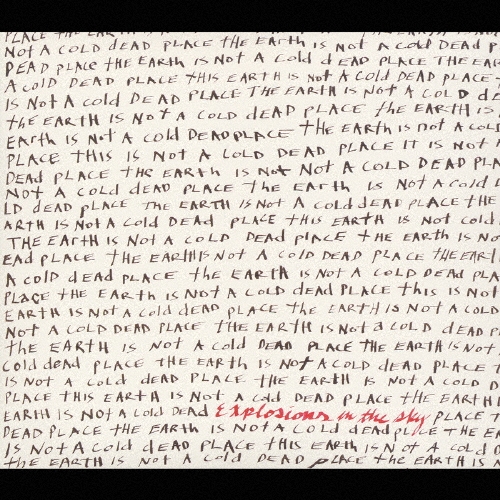 PLACE THE EARTH IS NOT A COLD DEAD PLACE THE EARTH IS
NOT A COLD DEAD PLACE THE EARTH IS NOT A COLD DEAD P
DEAD PLACE THE EARTH IS NOT A COLD DEAD PLACE THE EAR
A COLD DEAD PLACE THIS EARTH IS NOT A COLD DEAD PLACE
IS NOT A COLD DEAD PLACE THE EARTH IS NOT A COLD DE
THE EARTH IS NOT A COLD DEAD PLACE THE EARTH IS
EARTH IS NOT A COLD DEAD PLACE THE EARTH IS NOT A COL
PLACE THIS IS NOT A COLD DEAD PLACE IT IS NOT
DEAD PLACE THE EARTH IS NOT NOT A COLD DEAD PLA
NOT A COLD DEAD PLACE THE EARTH IS NOT A COLD
LD DEAD PLACE THE EARTH IS NOT A COLD DEAD PLACE THE
ARTH IS NOT A COLD DEAD PLACE THIS EARTH IS NOT COLD
THE EARTH IS NOT A COLD DEAD PLACE THE EARTH IS NO
EAD PLACE THE EARTH IS NOT A COLD DEAD PLACE THE EART
A COLD DEAD PLACE THE EARTH IS NOT A COLD DEAD PLA
PLACE THE EARTH IS NOT A COLD DEAD PLACE THIS IS NOT
EARTH IS NOT A COLD DEAD PLACE THE EARTH IS NOT A COLD
NOT A COLD DEAD PLACE THE EARTH IS NOT A COLD DEAD
THE EARTH IS NOT A COLD DEAD PLACE THE EARTH IS NOT
COLD DEAD PLACE THE EARTH IS NOT A COLD DEAD PLACE T
IS NOT A COLD DEAD PLACE THE EARTH IS NOT A COLD D
PLACE THIS EARTH IS NOT A COLD DEAD PLACE THE EARTH
EARTH IS NOT A COLD DEAD Explosions in the sky PLACE T
DEAD PLACE THE EARTH IS NOT A COLD DEAD PLACE THE EAR
IS NOT A COLD DEAD PLACE THIS EARTH IS NOT A COLD
THE EARTH IS NOT A COLD DEAD PLACE THE EARTH IS